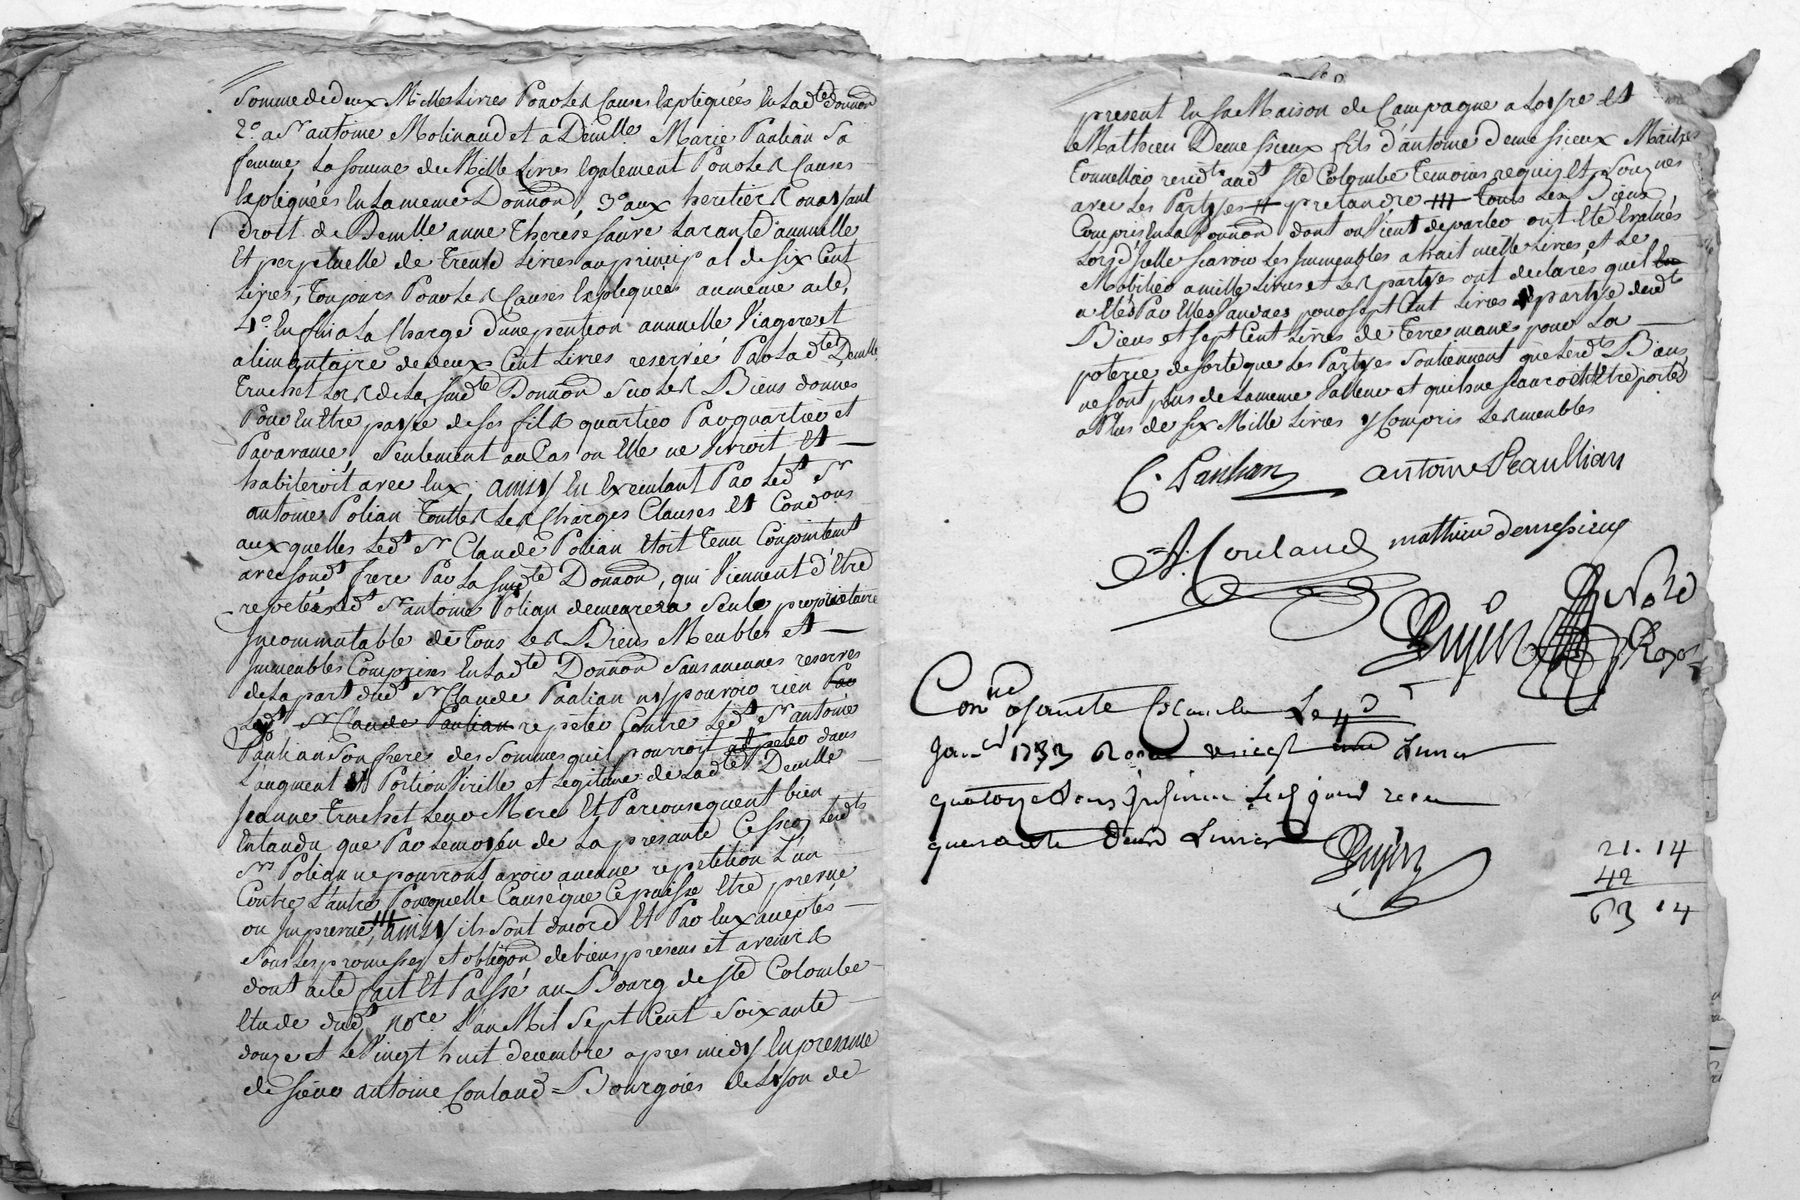 Somme de deux Milles Livres Pour Les Causes Expliquées En Ladte donnon
2.º a Sr antoine Molinaud et a Demlle Marie Paulian Sa
femme La Somme de Mille Livres Egalement Pour Les Causes
Expliquées En La meme Donnon, 3º aux heritiers ou ayant
Droit de Demlle anne Therese faure La rante annuelle
Et perpetuelle de Trente Livres au principal de Six Cent
Livres, Toujours Pour Les Causes Expliquées au même acte,
4º Enfin a La Charge d'une pention annuelle Viagere et
alimentaire de deux Cent Livres reservée Par Ladte Demlle
Truchet Lors de La Susdte Donnon Sur Les Biens donnés
Pour En Etre payée de Ses fils quartier Par quartier et
Par avance, Seulement au Cas ou Elle ne Vivroit Et
habiteroit avec Eux; ainsy En Executant Par Ledt Sr
antoine Polian Touttes Les Charges Clauses Et Condons
aux quelles Ledt Sr Claude Polian Etoit Tenu Conjointemt
avec Sondt frere Par La Susdte Donnon, qui Viennent d'être
repetées Ledt Sr antoine Polian demeurera Seule propriétaire
Incommutable de Tous Les Biens Meubles et
Immeubles Comprins En Ladte Donnon Sans aucunes reserves
de La part dudt Sr Claude Paulian ny pouvoir rien Par
Ledt Sr Claude Paulian repeter Contre Ledt Sr antoine
Paulian Son frere des Sommes quil pourroit repeter dans
L'augment Et Portion Virille et Legitime de Ladte Demlle
Jeanne Truchet Leur Mere Et Par Consequent bien
Entandu que Par Le moyen de La presante Cession Lesdts
Srs Polian ne pourront avoir aucune repetition L'un
Contre L'autre Pour quelle Cause que Ce puisse Etre prevue
ou Imprevue, ainsy ils Sont dacord Et Par Eux acceptés
Sous Les promesses et obligon de biens presens et avenirs
dont acte fait Et Passé au Bourg de Ste Colombe
Etude dudt Nore L'an Mil Sept Cent Soixante
douze et Le Vingt huit decembre apres midy En presance
de Sieur antoine Couland Bourgois de Lyon de
present En Sa Maison de Campagne a Loyre Et
Mathieu Demessieux fils d'antoine demessieux Maitre
Tonnellier residt audt Ste Colombe Temoins requis Et Soignes
avec Les Partyes pretandre Touts Les Biens
Compris En La Donnon dont on Vient de parler ont Ete Evalués
Lors d'Icelle scavoir Les Immeubles a trait mille Livres et Le
Mobilier a mille Livres et Les partyes ont declarés quil
a Etés Par Elles Vandues pour Sept Cent Livres partye desdts
Biens et Sept Cent Livres de Terre pour La
poterie de Sorte que Les Partyes Soutiennent que Lesdts Biens
ne Sont plus de La meme Valleur et quils ne scauroit Etre portés
a Plus de Six Mille Livres y Compris Les meubles
C. Paulian antoine Peaullian
A. Couland mathieu demessieux
Duyon
Le 4
Janer 1773
quatorze Sous
quarante deux Livres
Duyon
21. 14
42
63 14